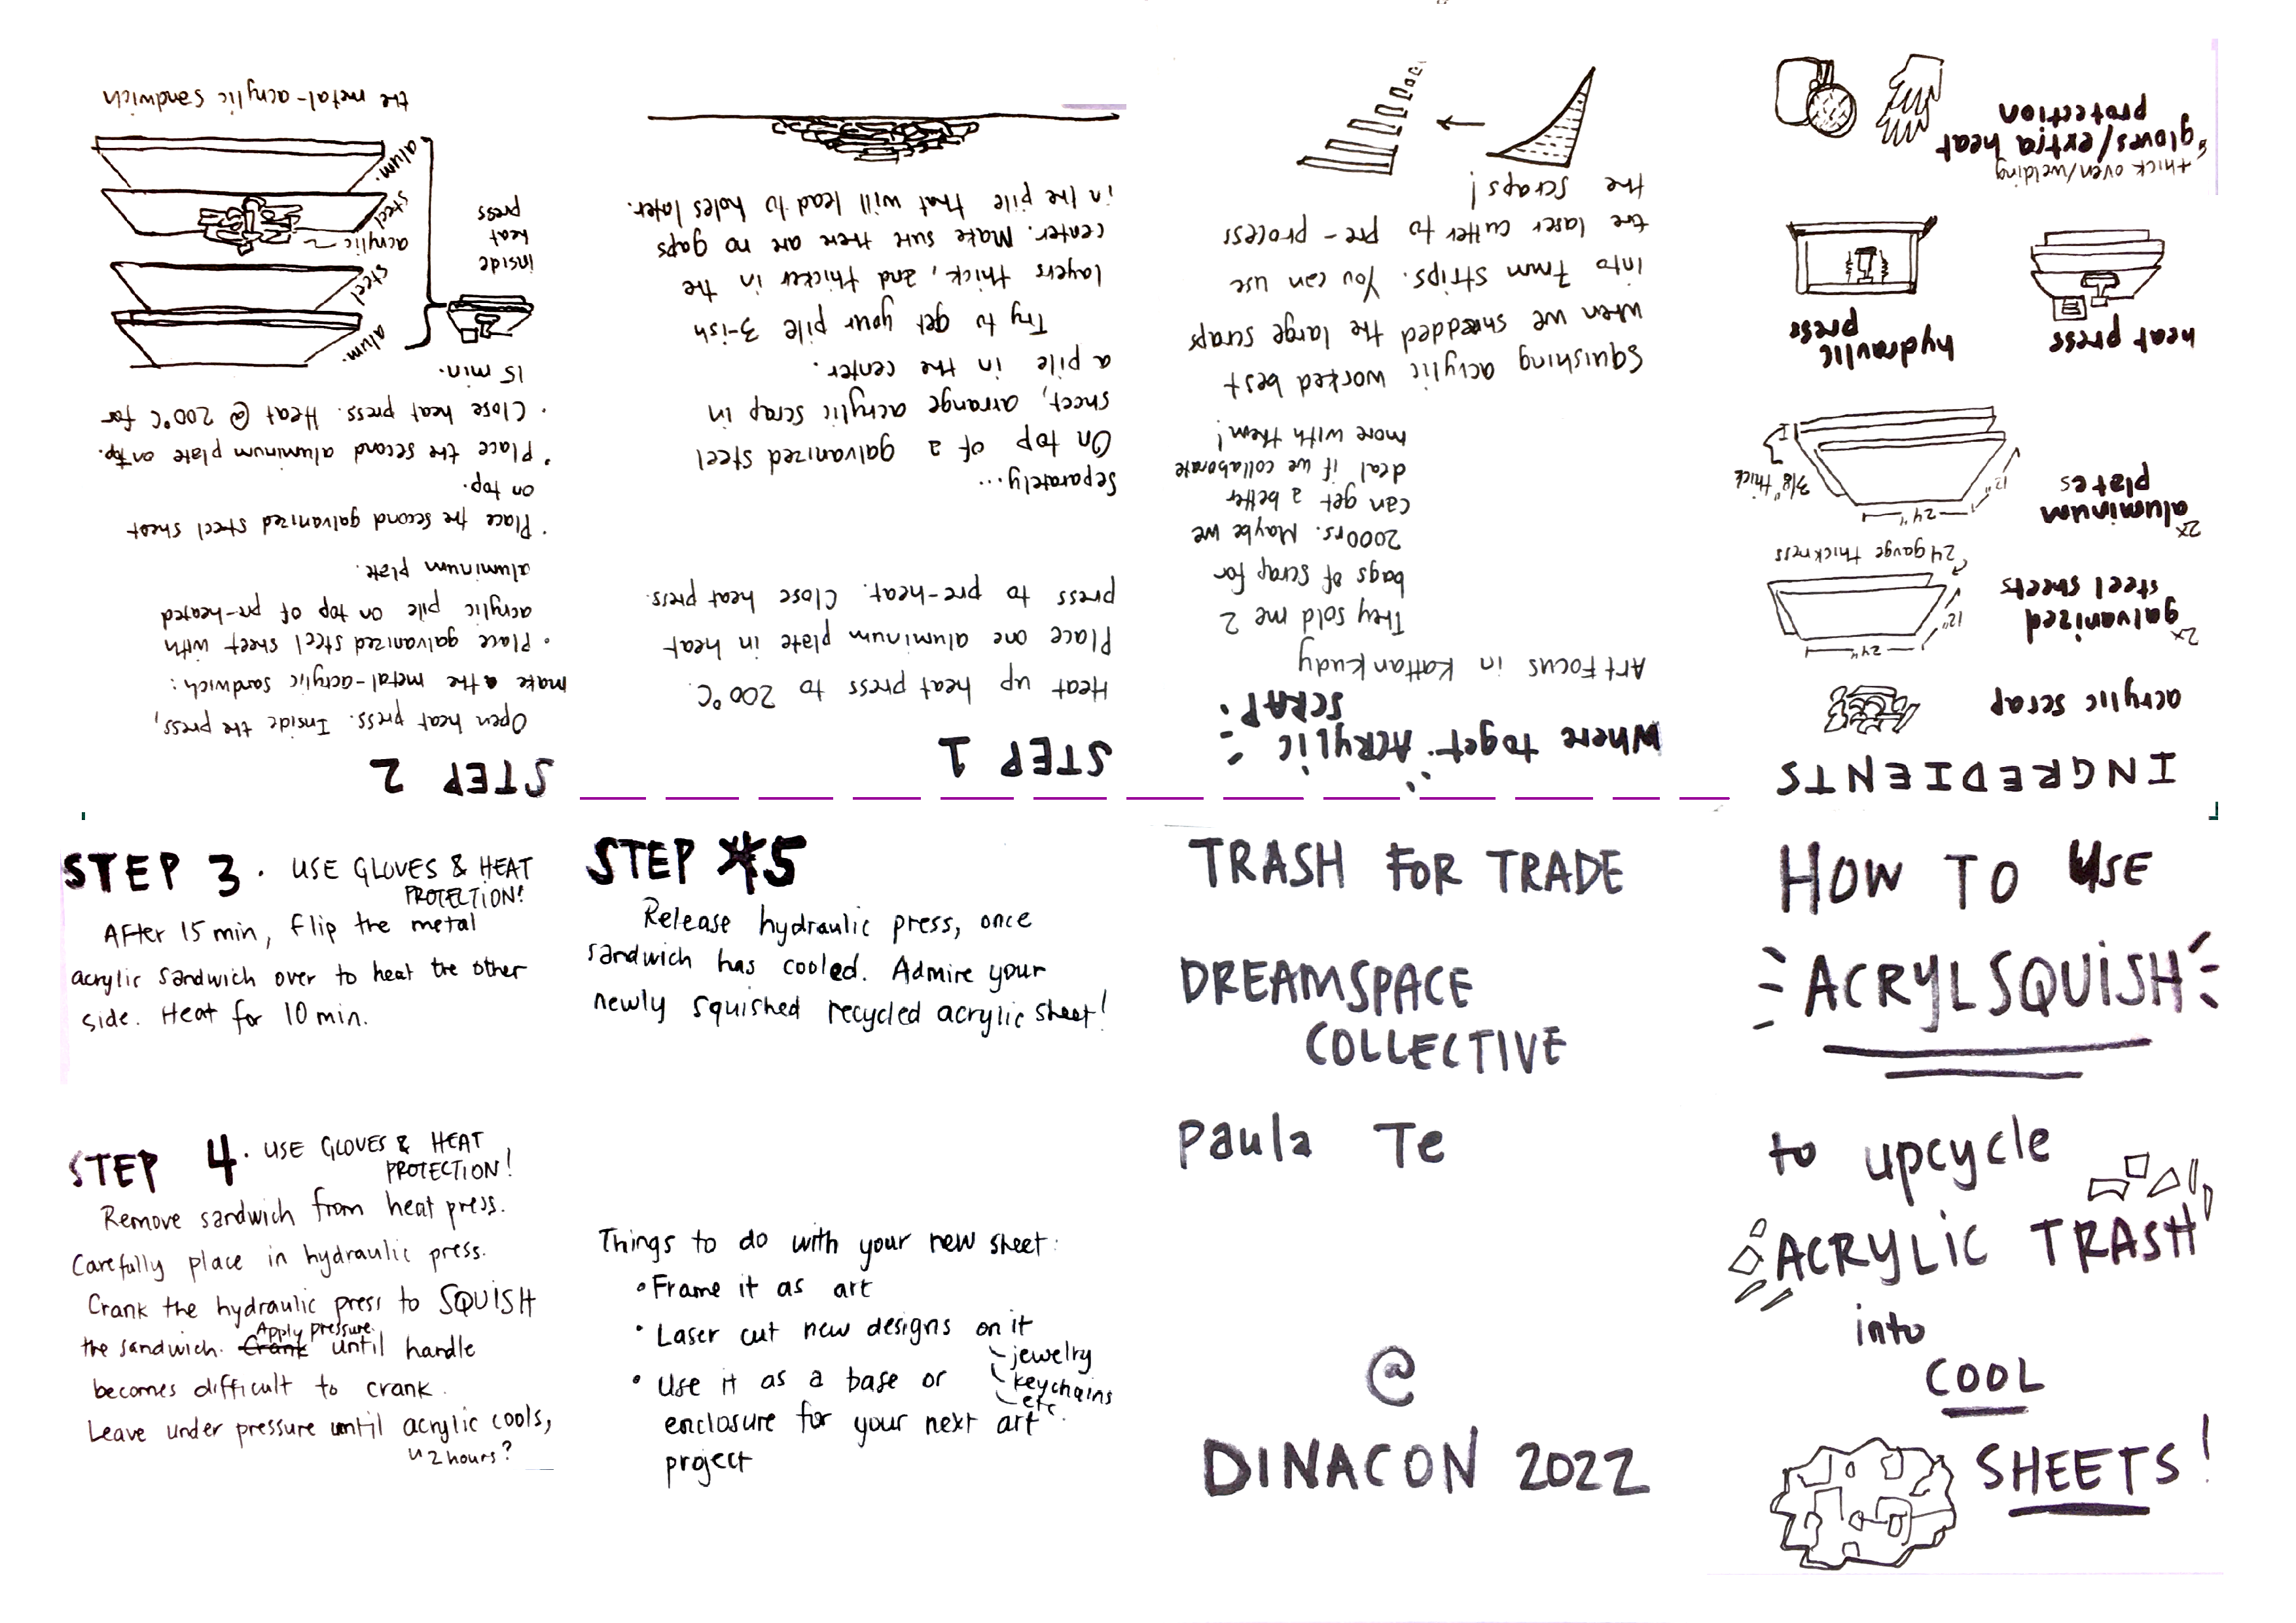 HOW TO USE
ACRYLSQUISH
to upcycle
ACRYLIC TRASH
into
COOL
SHEETS!
INGREDIENTS
acrylic scrap
2x galvanized
steel sheets
24"
12"
24 gauge thickness
2x aluminum
plates
24"
12"
3/8" thick
heat press
hydraulic
press
thick oven/welding
gloves/extra heat
protection
Where to get ACRYLIC
SCRAP?
Art Focus in Kattankudy
They sold me 2
bags of scrap for
2000rs. Maybe we
can get a better
deal if we collaborate
more with them!
Squishing acrylic worked best
when we shredded the large scraps
into 7mm strips. You can use
the laser cutter to pre-process
the scraps!
STEP 1
Heat up heat press to 200°C.
Place one aluminum plate in heat
press to pre-heat. Close heat press.
Separately...
On top of a galvanized steel
sheet, arrange acrylic scrap in
a pile in the center.
Try to get your pile 3-ish
layers thick, and thicker in the
center. Make sure there are no gaps
in the pile that will lead to holes later.
STEP 2
Open heat press. Inside the press,
make the metal-acrylic sandwich:
• Place galvanized steel sheet with
acrylic pile on top of pre-heated
aluminum plate.
• Place the second galvanized steel sheet
on top.
• Place the second aluminum plate on top.
• Close heat press. Heat @ 200°C for
15 min.
alum.
steel
acrylic
steel
alum.
inside
heat
press
the metal-acrylic sandwich
STEP 3. USE GLOVES & HEAT
PROTECTION!
After 15 min, flip the metal
acrylic sandwich over to heat the other
side. Heat for 10 min.
STEP 4. USE GLOVES & HEAT
PROTECTION!
Remove sandwich from heat press.
Carefully place in hydraulic press.
Crank the hydraulic press to SQUISH
the sandwich. Crank Apply pressure until handle
becomes difficult to crank.
Leave under pressure until acrylic cools,
~2 hours?
STEP 5
Release hydraulic press, once
sandwich has cooled. Admire your
newly squished recycled acrylic sheet!
Things to do with your new sheet:
• Frame it as art
• Laser cut new designs on it
jewelry
keychains
etc.
• Use it as a base or
enclosure for your next art
project
TRASH FOR TRADE
DREAMSPACE
COLLECTIVE
Paula Te
@
DINACON 2022